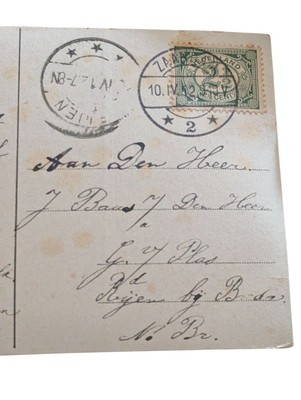 ZAA
10.IV.12.
2
NEDERLAND
2½
IJEN
IV.1 7-8N
Aan Den Heer
J Baas V/ Den Heer
a
G. V/ Plas
Rijen bij Breda
N. Br.